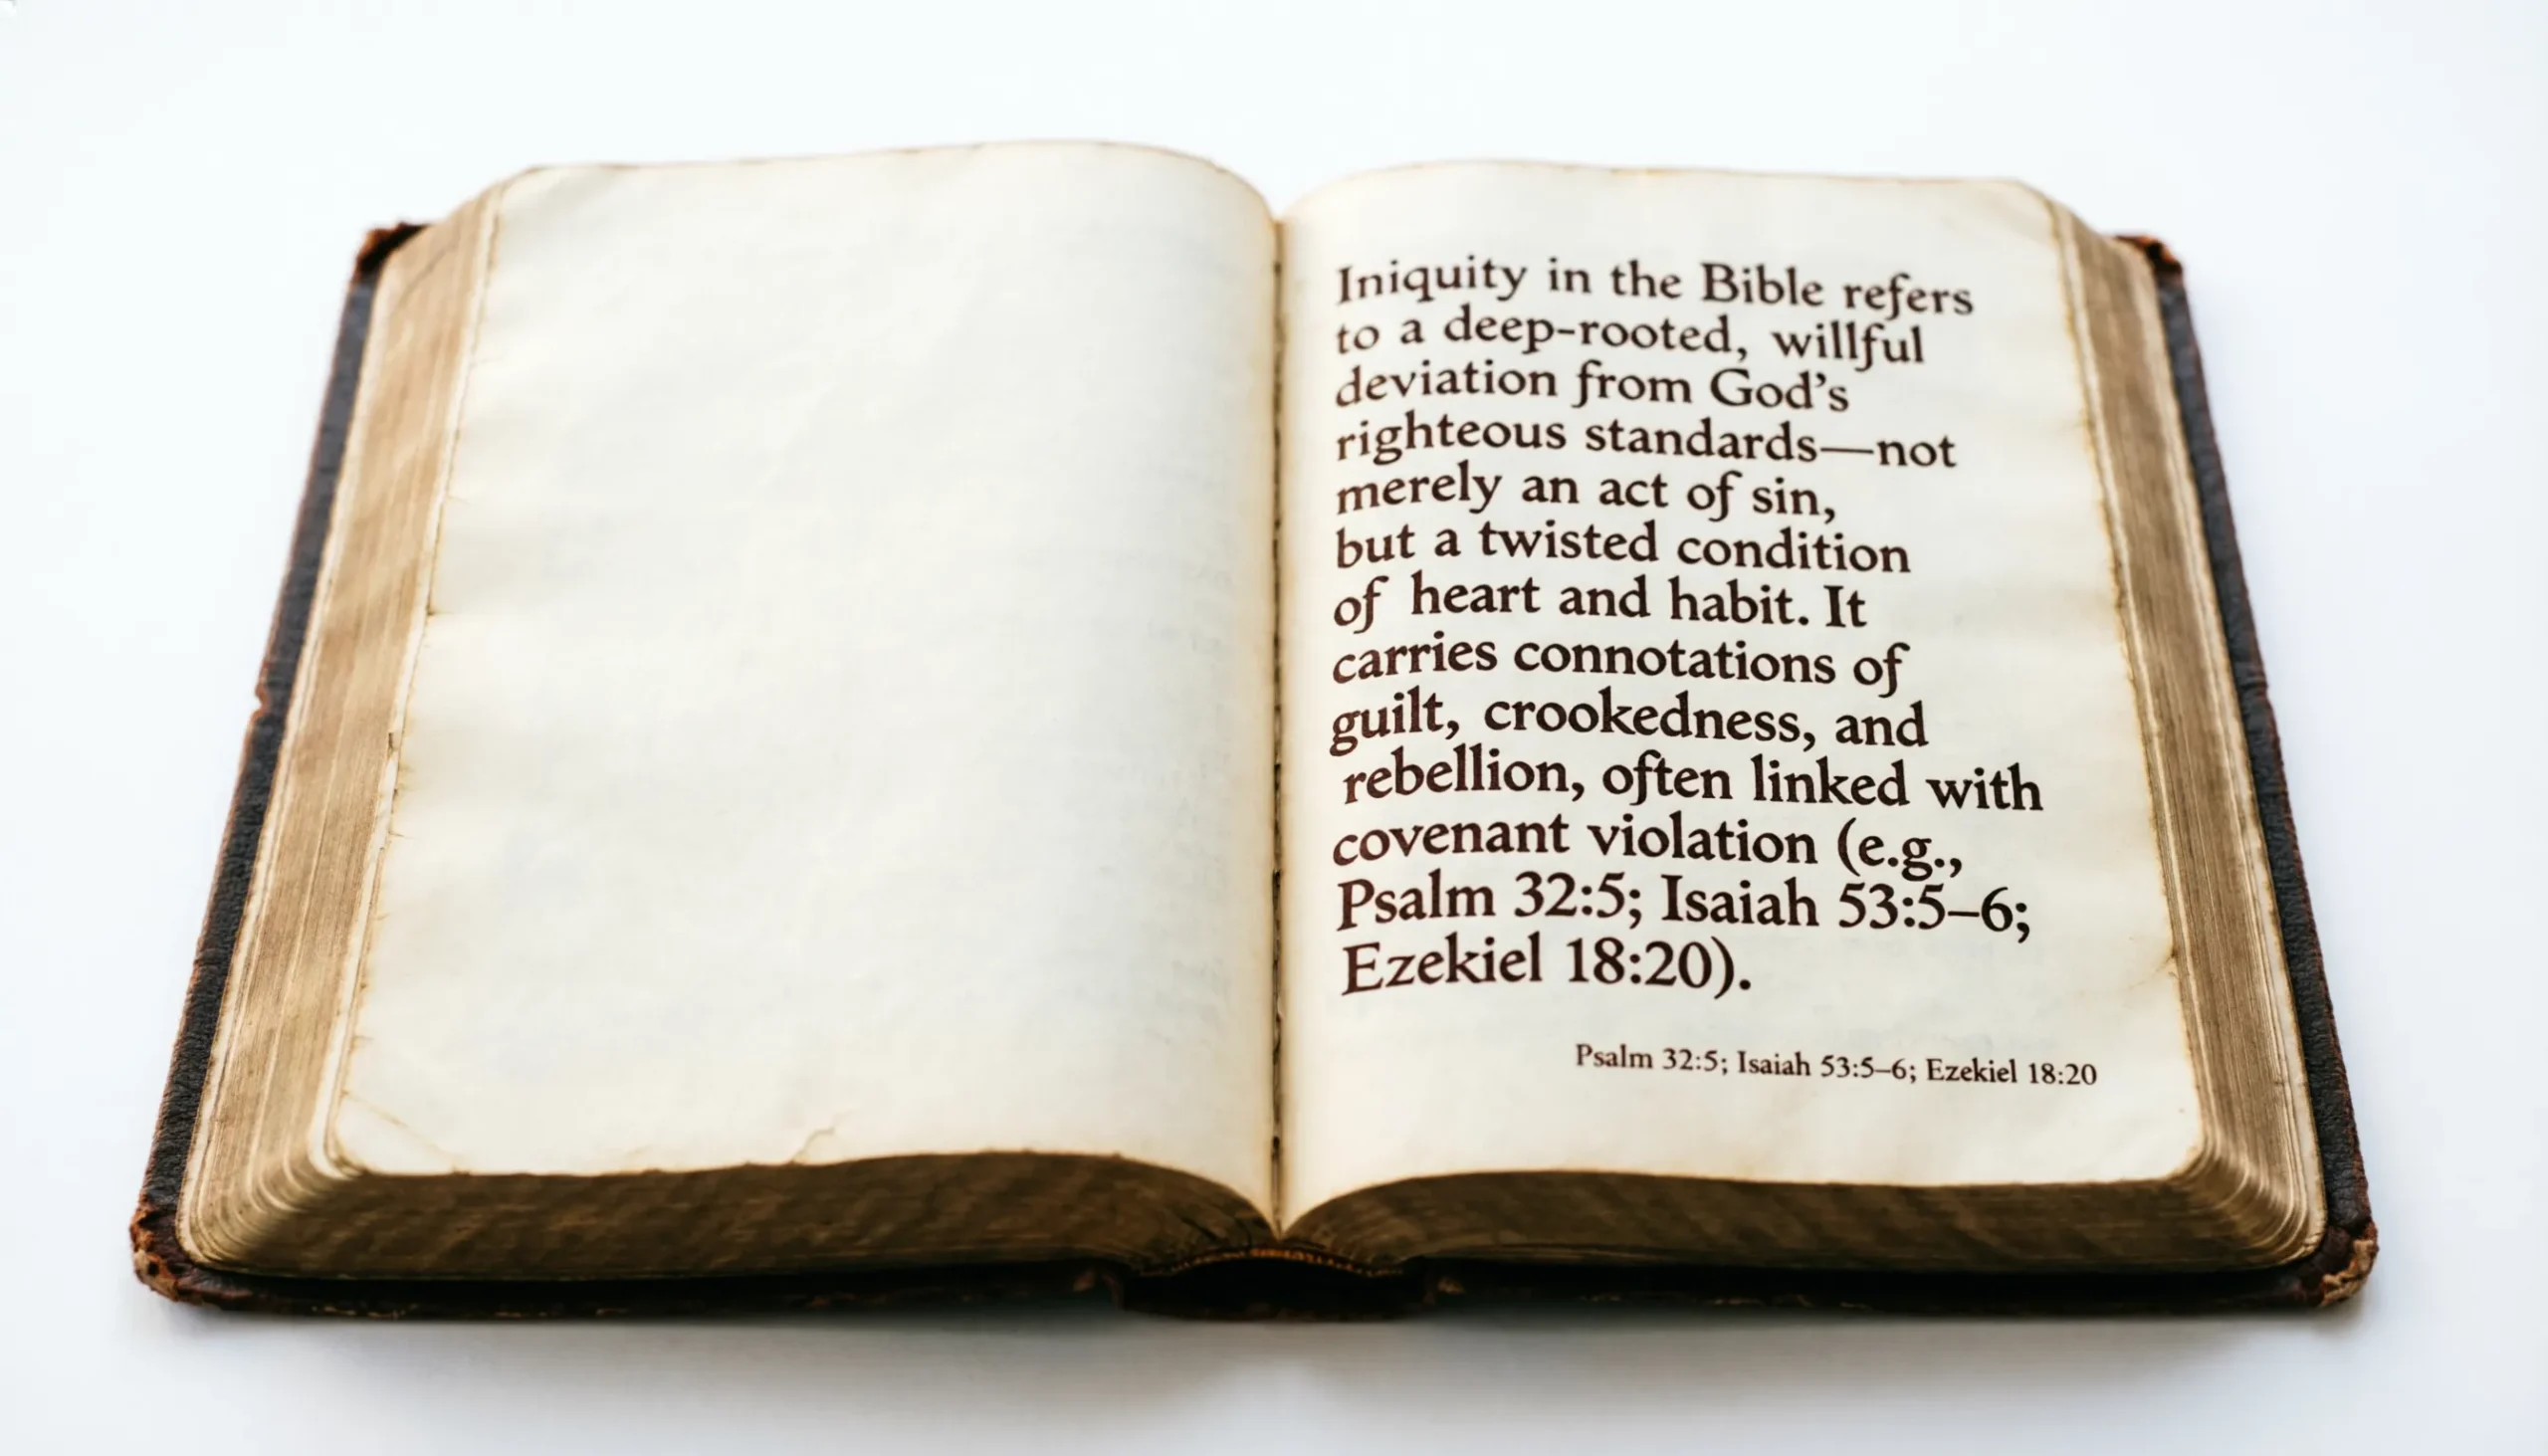 Iniquity in the Bible refers
to a deep-rooted, willful
deviation from God's
righteous standards—not
merely an act of sin,
but a twisted condition
of heart and habit. It
carries connotations of
guilt, crookedness, and
rebellion, often linked with
covenant violation (e.g.,
Psalm 32:5; Isaiah 53:5–6;
Ezekiel 18:20).
Psalm 32:5; Isaiah 53:5–6; Ezekiel 18:20